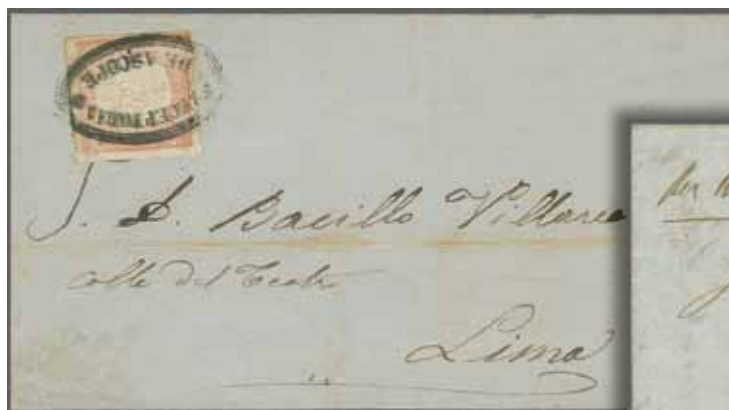 RECEPTORIA
DE ASCOPE
S. D. Bacillo Villarea
calle del Teatro
Lima